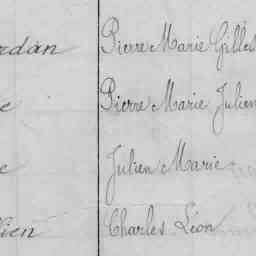 rdan Pierre Marie Gilles
e Pierre Marie Julien
e Julien Marie
ien Charles Léon